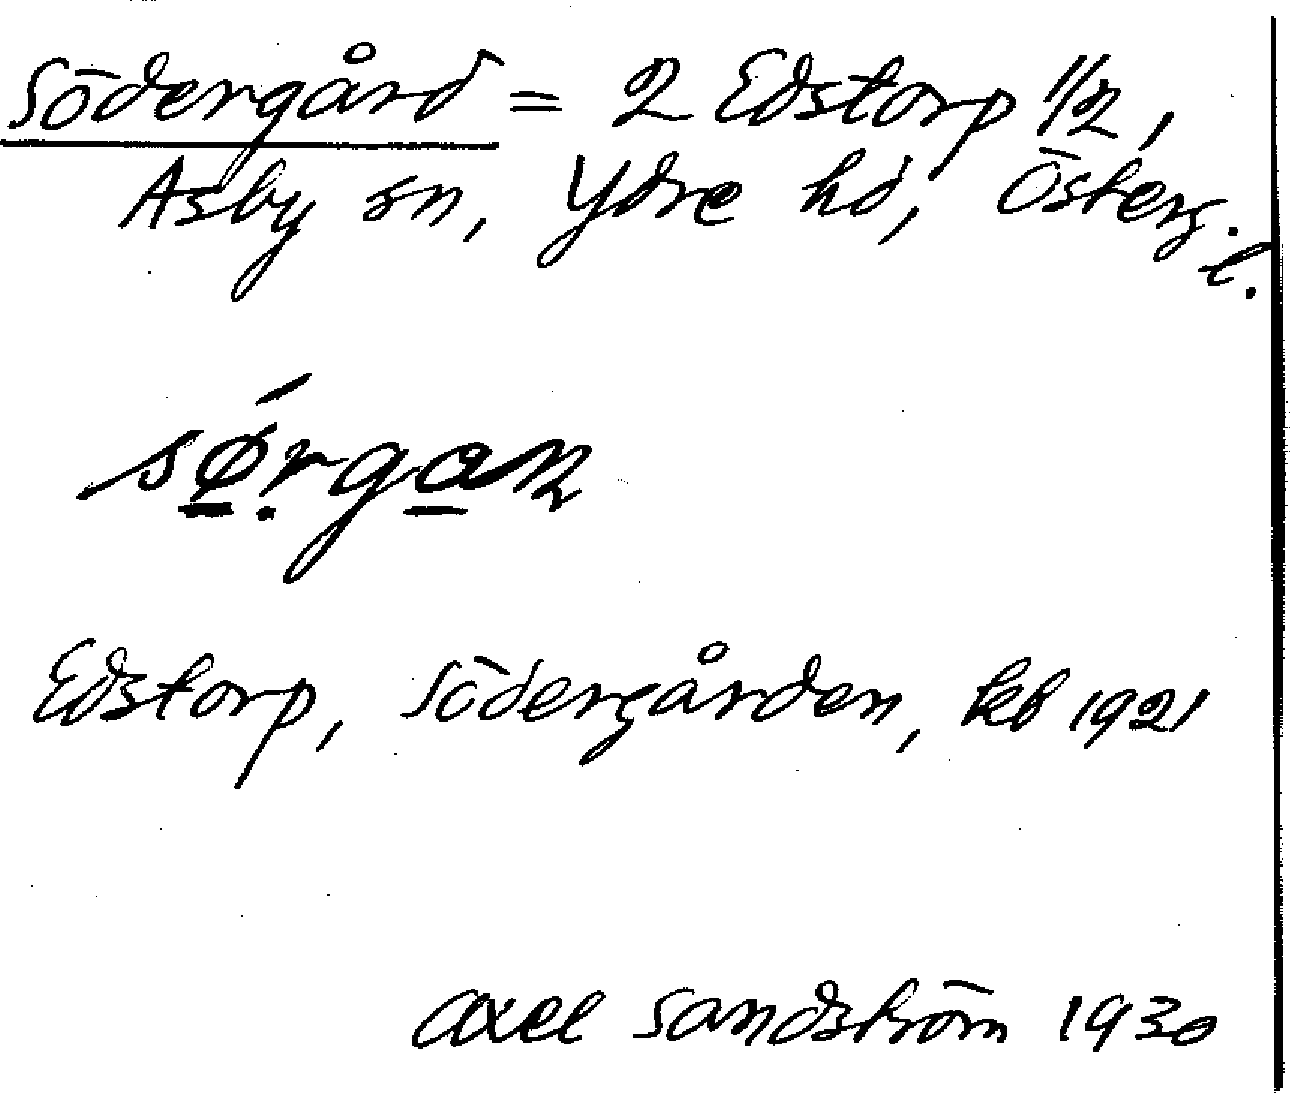 Södergård = 2 Edstorp 1/2,
Asby sn, Ydre hd, Österg.l.
sǿ̱ṛga̱n
Edstorp, Södergården, kb 1921
Axel Sandström 1930